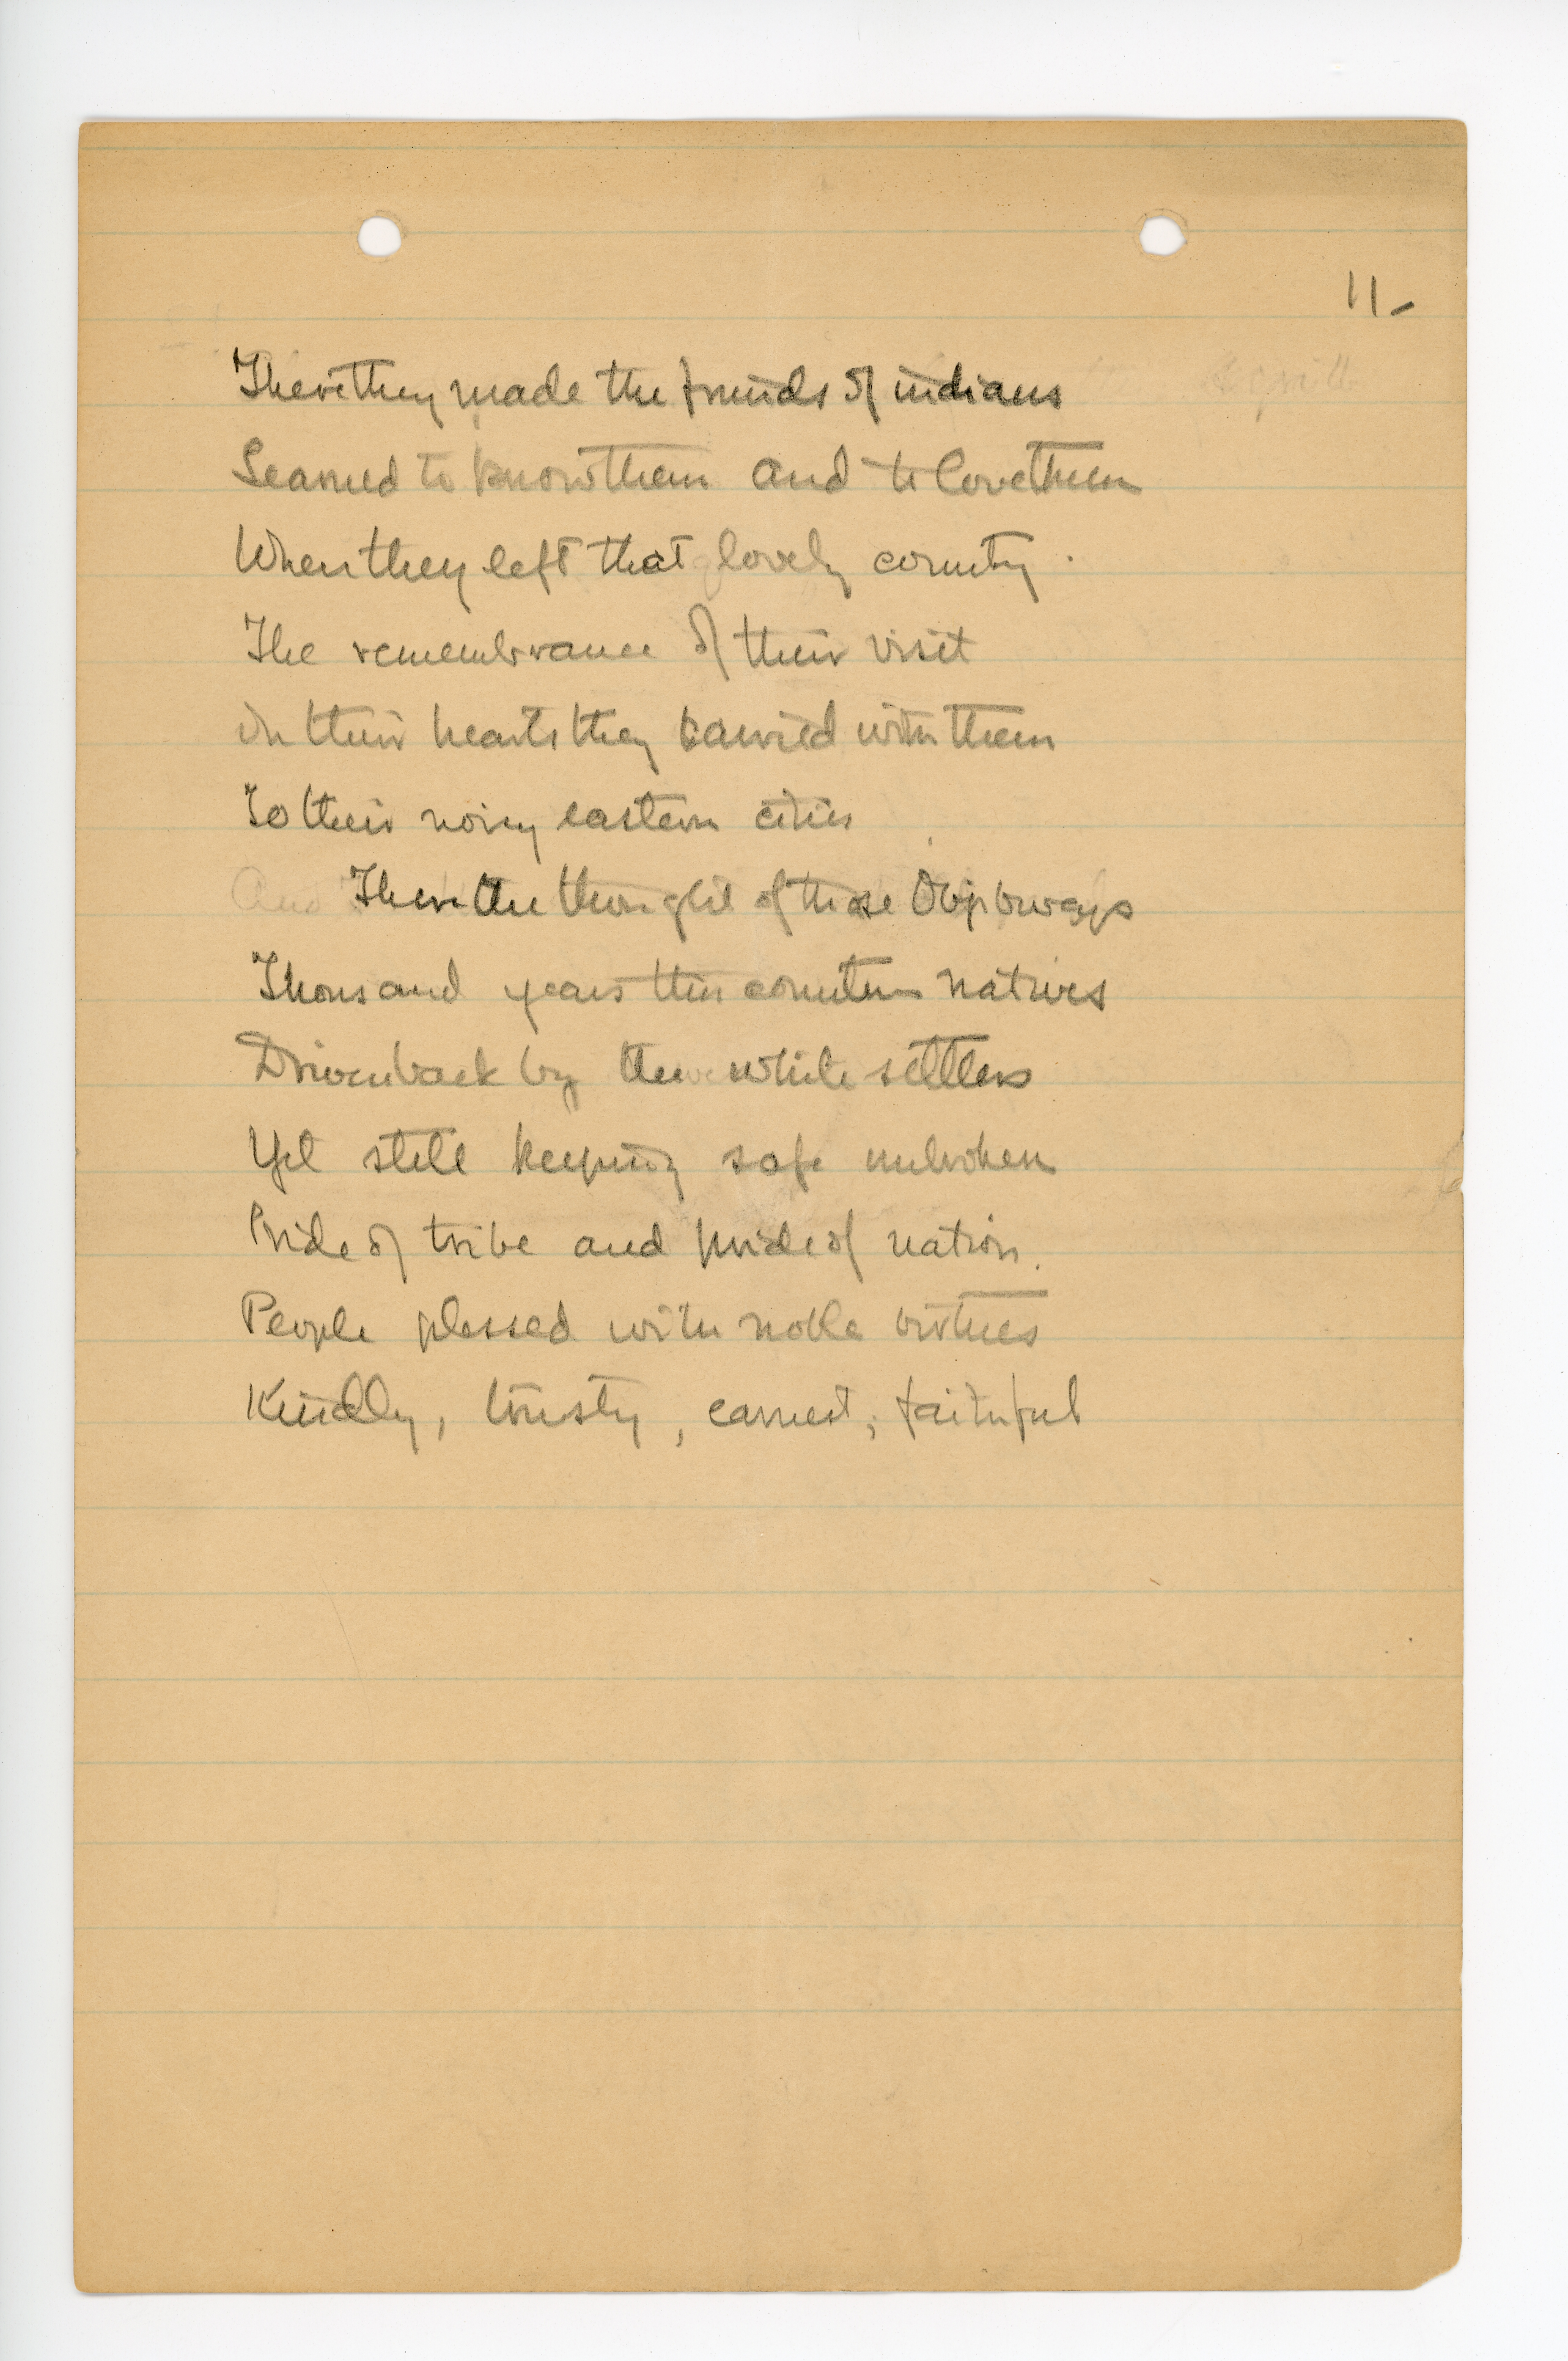 11-
There they made the friends of indians
Learned to know them and to love them
When they left that lovely country.
The remembrance of their visit
In their hearts they carried with them
To their noisy eastern cities
There the thought of those Objibways
Thousand years this countrys natives
Driven back by the white settlers
Yet still keeping safe unbroken
Pride of tribe and pride of nation.
People plessed with noble virtues
Kindly, trusty, earnest, faithful